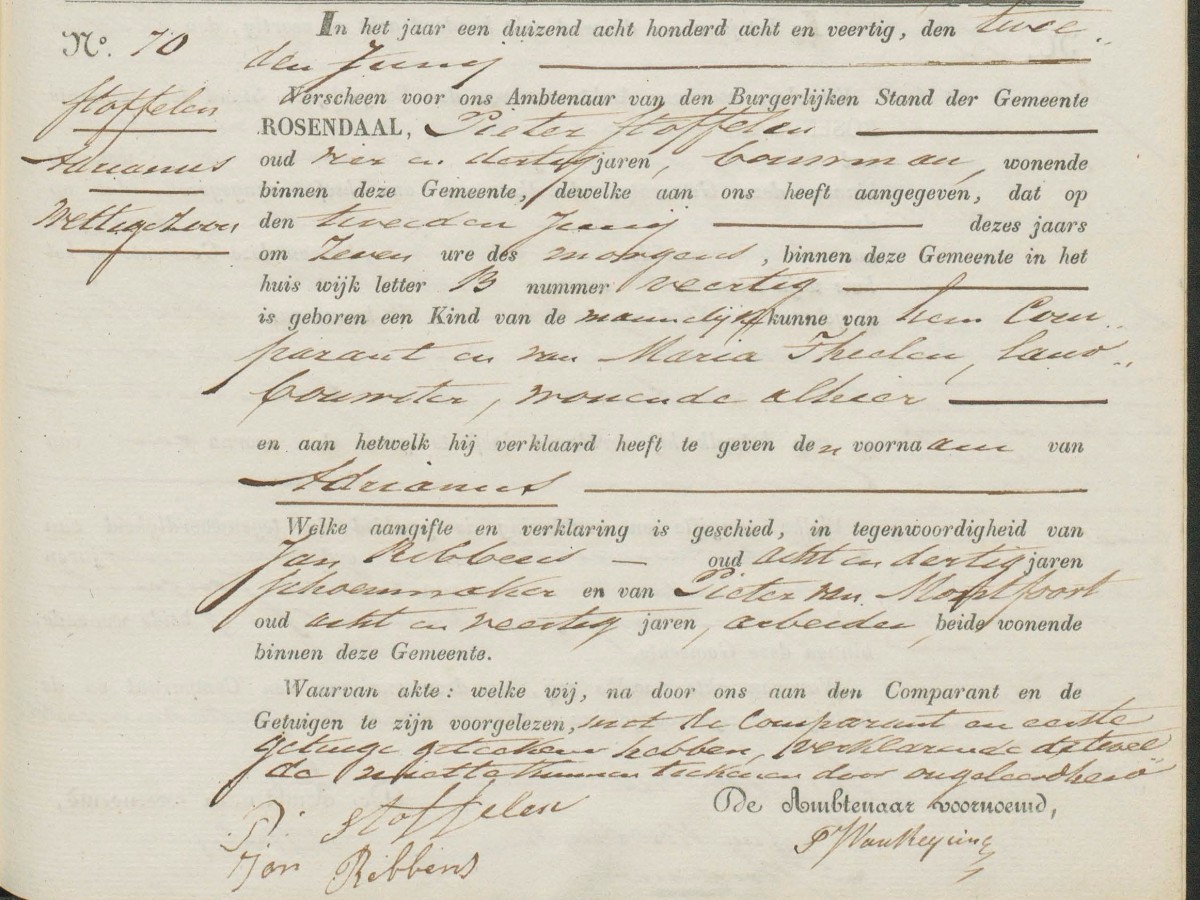 In het jaar een duizend acht honderd acht en veertig, den twee-
den Junij
No. 70
Stoffelen
Adrianus
Wettige Zoon
Verscheen voor ons Ambtenaar van den Burgerlijken Stand der Gemeente
ROSENDAAL, Pieter Stoffelen
oud vier en dertig jaren, bouwman, wonende
binnen deze Gemeente, dewelke aan ons heeft aangegeven, dat op
den tweeden Junij dezes jaars
om zeven ure des morgens, binnen deze Gemeente in het
huis wijk letter B nummer veertig
is geboren een Kind van de mannelijke kunne van hem Com-
parant en van Maria Theelen, land-
bouwster, wonende alhier
en aan hetwelk hij verklaard heeft te geven den voornaam van
Adrianus
Welke aangifte en verklaring is geschied, in tegenwoordigheid van
Jan Ribbens oud acht en dertig jaren
schoenmaker en van Pieter van Montfoort
oud acht en veertig jaren, arbeider, beide wonende
binnen deze Gemeente.
Waarvan akte: welke wij, na door ons aan den Comparant en de
Getuigen te zijn voorgelezen, met de Comparant en eerste
getuige geteekend hebben, verklarende de twee
de niet te kunnen teekenen door ongeleerdheid
De Ambtenaar voornoemd,
P. Stoffelen
Jan Ribbens